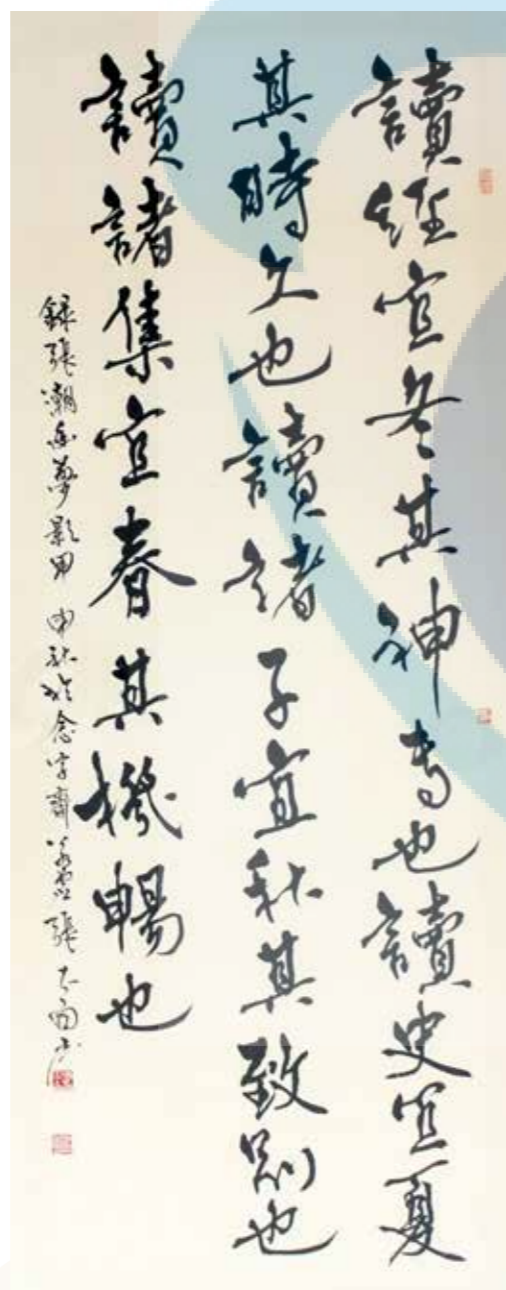 讀經宜冬其神專也讀史宜夏
其時久也讀諸子宜秋其致別也
讀諸集宜春其機暢也
録張潮幽夢影甲申秋於念宇齋張書